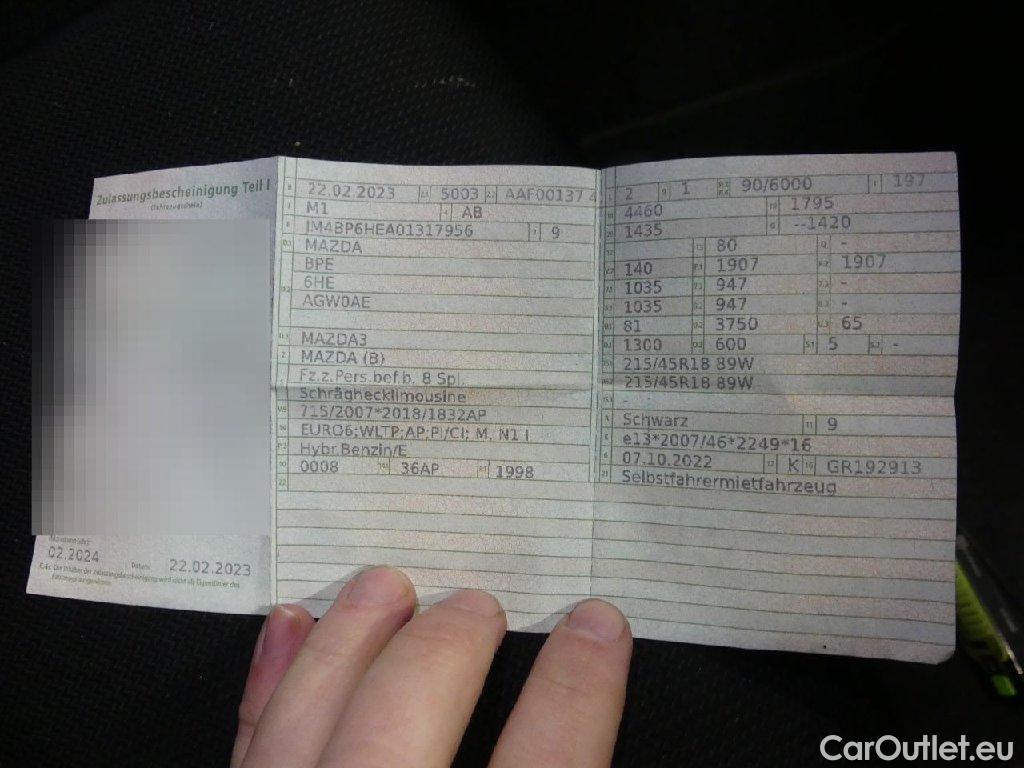 Zulassungsbescheinigung Teil I
02.2024
Datum 22.02.2023
22.02.2023 5003 AAF00137 4
M1 AB
JM4BP6HEA01317956 9
MAZDA
BPE
6HE
AGW0AE
MAZDA3
MAZDA (B)
Fz.z.Pers.bef.b. 8 Spl.
Schräghecklimousine
715/2007*2018/1832AP
EURO6;WLTP;AP;PI/CI; M, N1 I
Hybr.Benzin/E
0008 36AP 1998
2 1 90/6000 197
4460 1795
1435 --1420
80 -
140 1907 1907
1035 947 -
1035 947 -
81 3750 65
1300 600 5 -
215/45R18 89W
215/45R18 89W
- -
Schwarz 9
e13*2007/46*2249*16
07.10.2022 K GR192913
Selbstfahrermietfahrzeug
CarOutlet.eu